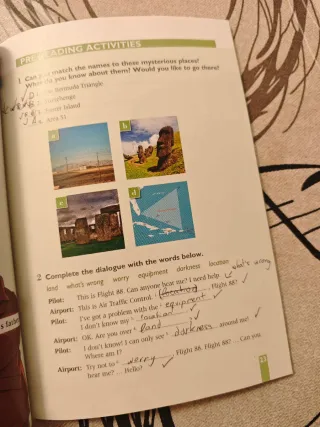 PRE-READING ACTIVITIES
1 Can you match the names to these mysterious places?
What do you know about them? Would you like to go there?
Bermuda Triangle
Stonehenge
Easter Island
Area 51
a
b
c
d
2 Complete the dialogue with the words below.
land what's wrong worry equipment darkness location
Pilot: This is Flight 88. Can anyone hear me? I need help.
what's wrong
Airport: This is Air Traffic Control. Flight 88?
Pilot: I've got a problem with the equipment
I don't know my location
Airport: OK. Are you over land
Pilot: I don't know! I can only see darkness around me!
Where am I?
Airport: Try not to worry Flight 88. Flight 88? ... Can you
hear me? ... Hello?
23